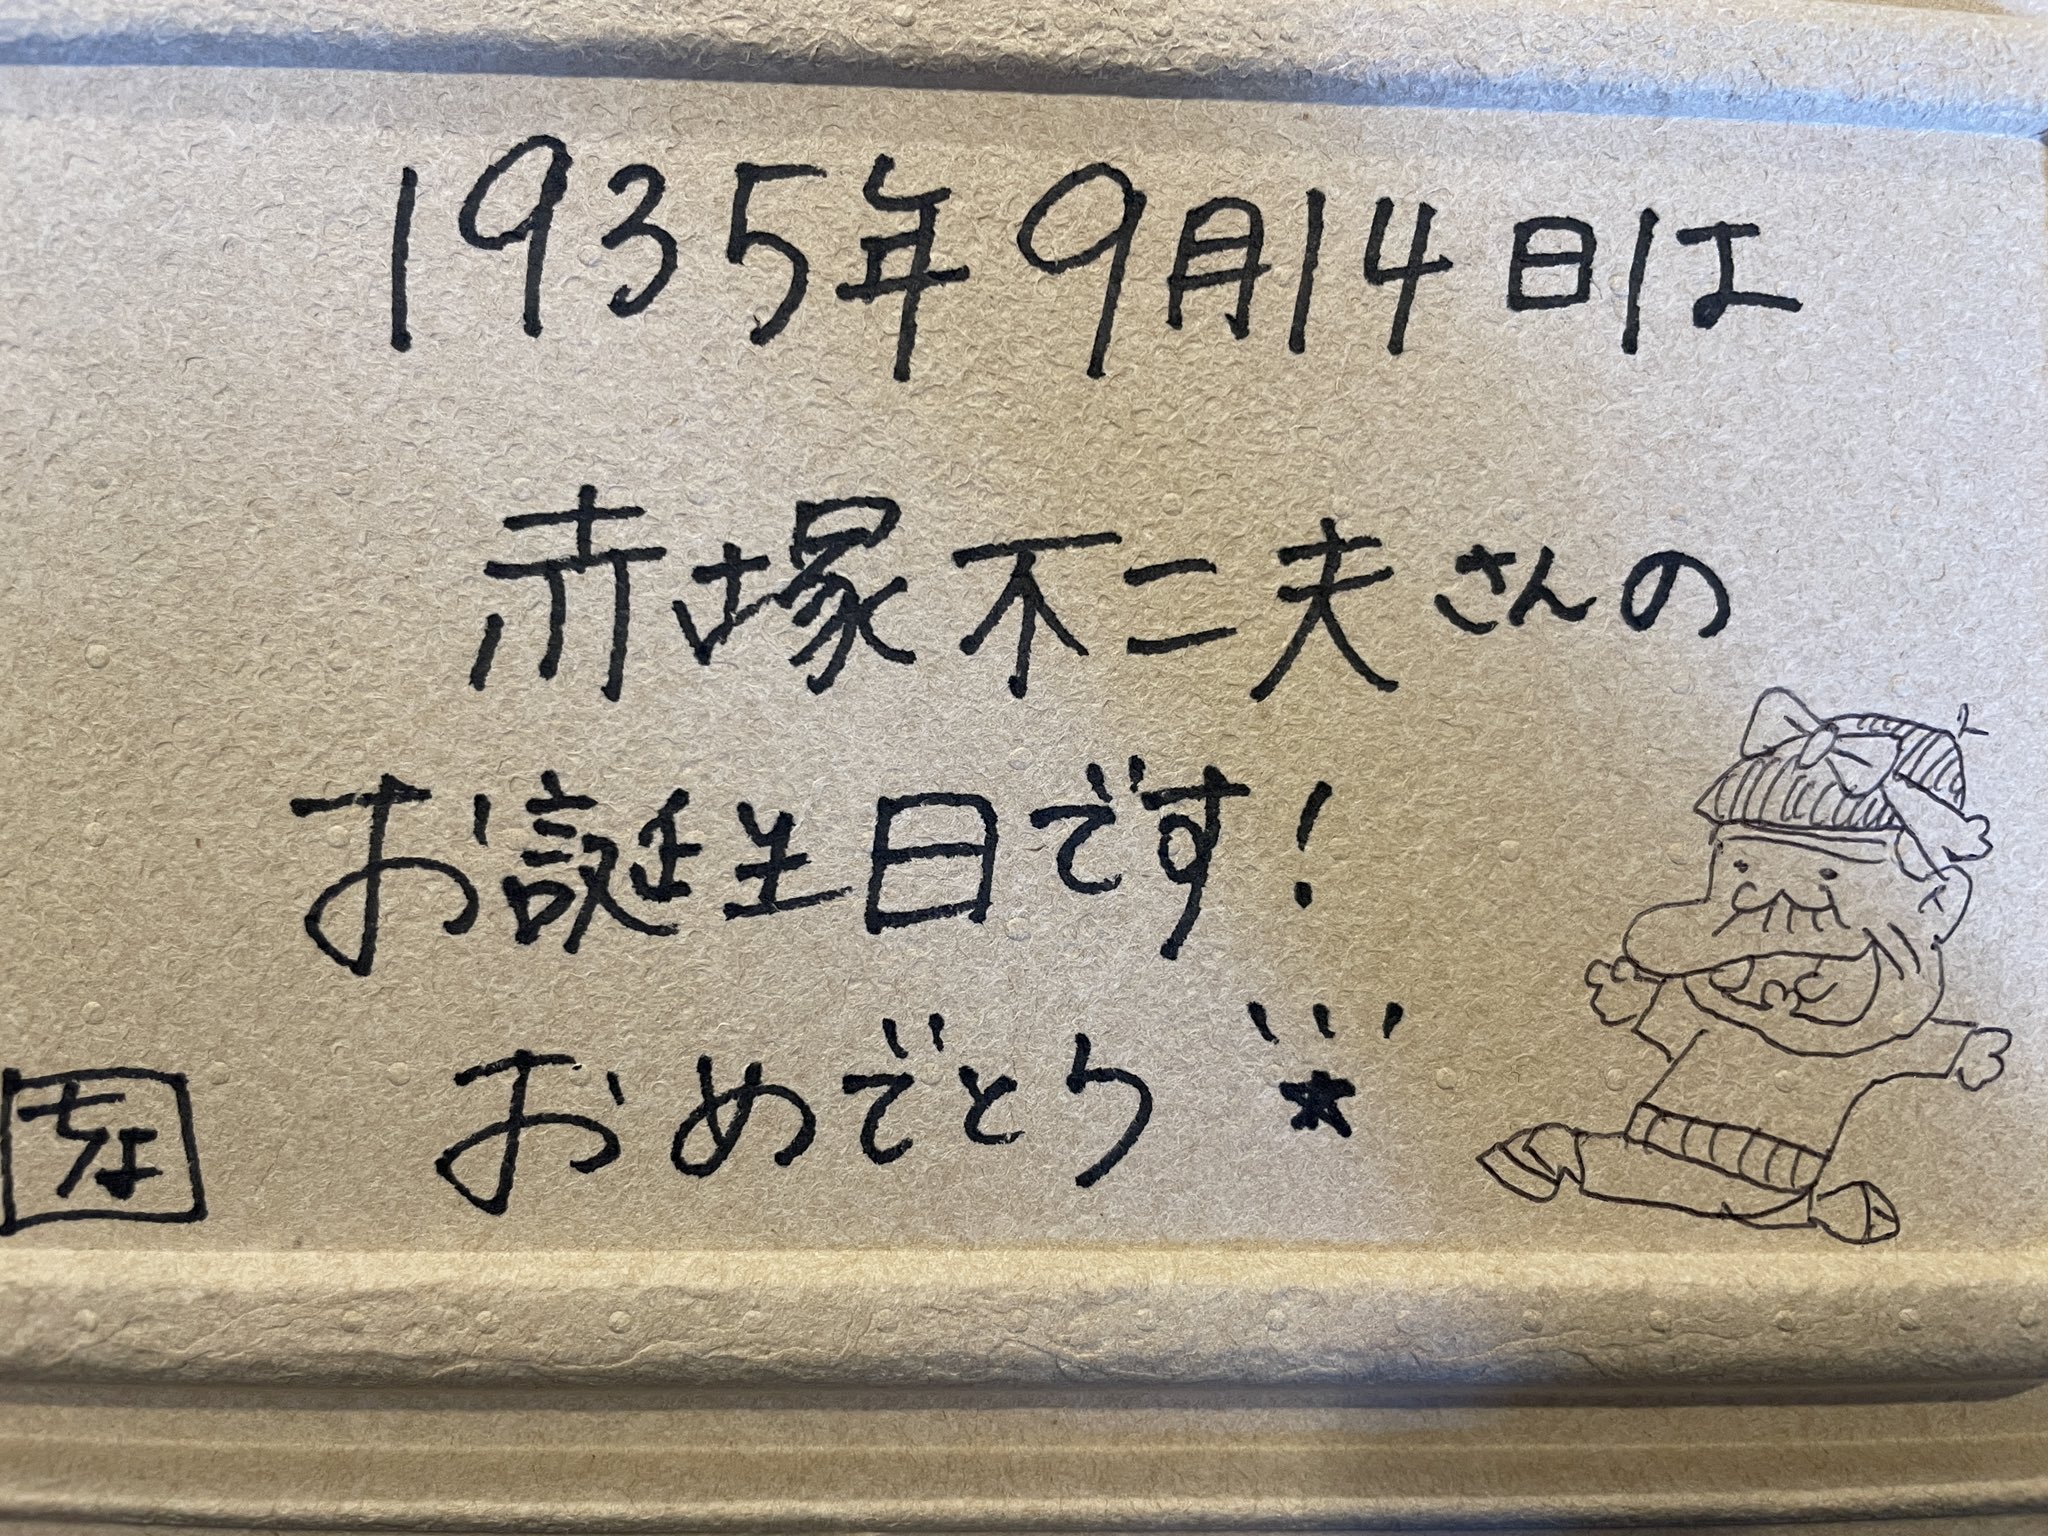 1935年9月14日は
赤塚不二夫さんの
お誕生日です!
おめでとう★
ちよ